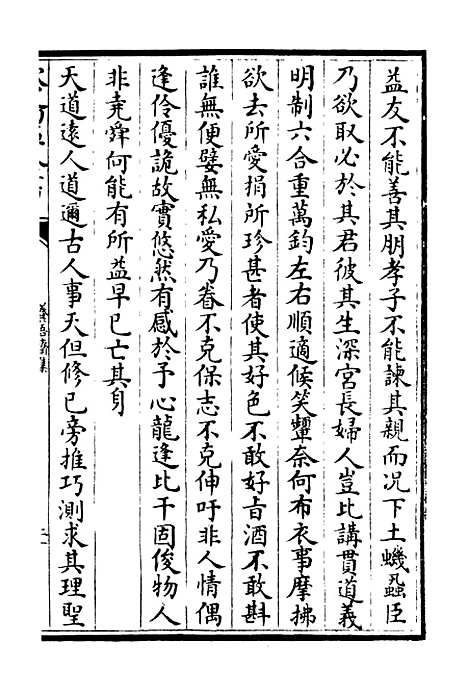 益友不能善其朋孝子不能諫其親而况下土蟣虱臣
乃欲取必於其君彼其生深宮長婦人豈比講貫道義
明制六合重萬鈞左右順適候笑顰奈何布衣事摩拂
欲去所愛捐所珍甚者使其好色不敢好旨酒不敢斟
誰無便嬖無私愛乃眷不克保志不克伸吁非人情偶
逢伶優詭故實悠然有感於予心龍逢比干固俊物人
非堯舜何能有所益早已亡其身
天道逺人道邇古人事天但修已旁推巧測求其理聖
養吾齋集